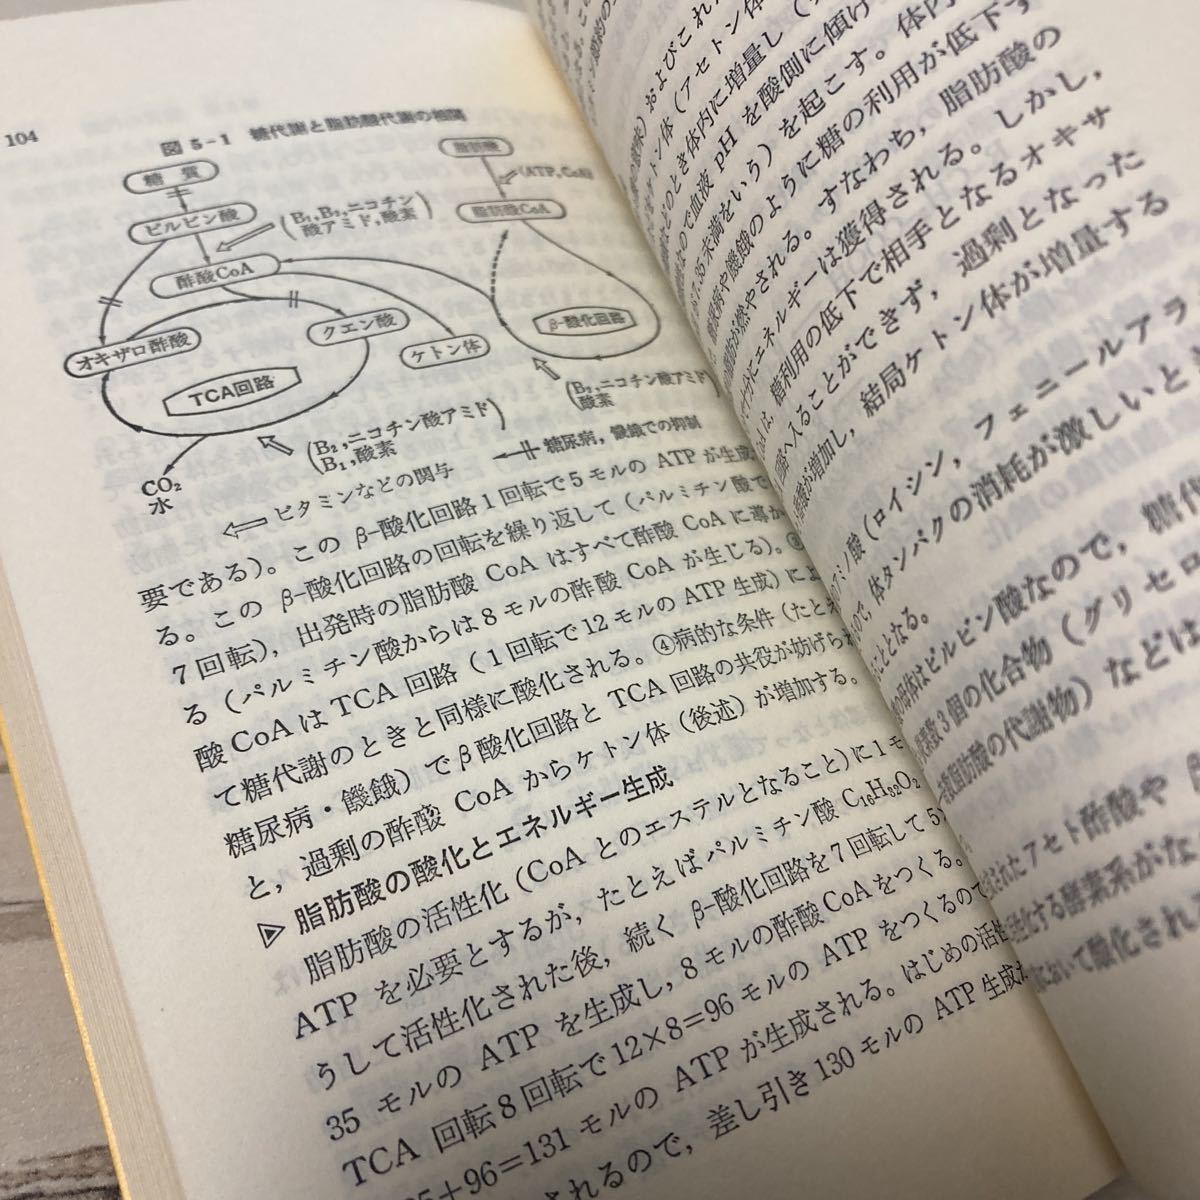 104
図 5-1 糖代謝と脂肪酸代謝の相関
糖質
脂肪酸
(ATP, CoA)
ピルビン酸
(B₁, B₂, ニコチン
酸アミド, 酸素)
脂肪酸CoA
酢酸CoA
オキザロ酢酸
クエン酸
ケトン体
β-酸化回路
TCA回路
(B₂, ニコチン酸アミド
酸素)
(B₂, ニコチン酸アミド
B₁, 酸素)
糖尿病, 饑餓での抑制
CO₂
水
ビタミンなどの関与
要である)。この β-酸化回路1回転で5モルの ATP が生成
る。この β-酸化回路の回転を繰り返して (パルミチン酸で
7回転), 出発時の脂肪酸 CoA はすべて酢酸 CoA に導か
る (パルミチン酸からは8モルの酢酸 CoA が生じる)。③
酸 CoA は TCA 回路 (1回転で12モルの ATP 生成) によ
て糖代謝のときと同様に酸化される。④病的な条件 (たとえ
糖尿病・饑餓) でβ酸化回路と TCA 回路の共役が妨げられ
と, 過剰の酢酸 CoA からケトン体 (後述) が増加する。
▷ 脂肪酸の酸化とエネルギー生成
脂肪酸の活性化 (CoA とのエステルとなること) に1モ
ATP を必要とするが, たとえばパルミチン酸 C₁₆H₃₂O₂
うして活性化された後, 続く β-酸化回路を7回転して5
35 モルの ATP を生成し, 8モルの酢酸 CoA をつくる。
TCA 回転8回転で 12×8=96 モルの ATP をつくるので
5+96=131 モルの ATP が生成される。はじめの活性
されるので, 差し引き 130 モルの ATP 生成
およびこれ
ケトン体 (アセトン体
のとき体内に増量し
なので血液 pH を酸側に傾け
7.35 未満をいう) を起こす。体内
糖尿病や饑餓のように糖の利用が低下す
が燃やされる。すなわち, 脂肪酸の
エネルギーは獲得される。しかし,
は, 糖利用の低下で相手となるオキサ
回路へ入ることができず, 過剰となった
が増加し, 結局ケトン体が増量する
アミノ酸 (ロイシン, フェニールアラ
ので, 体タンパクの消耗が激しいとき
こととなる。
はピルビン酸なので, 糖代
3個の化合物 (グリセロ
脂肪酸の代謝物) などは
されたアセト酢酸や β
化する酵素系がな
において酸化され